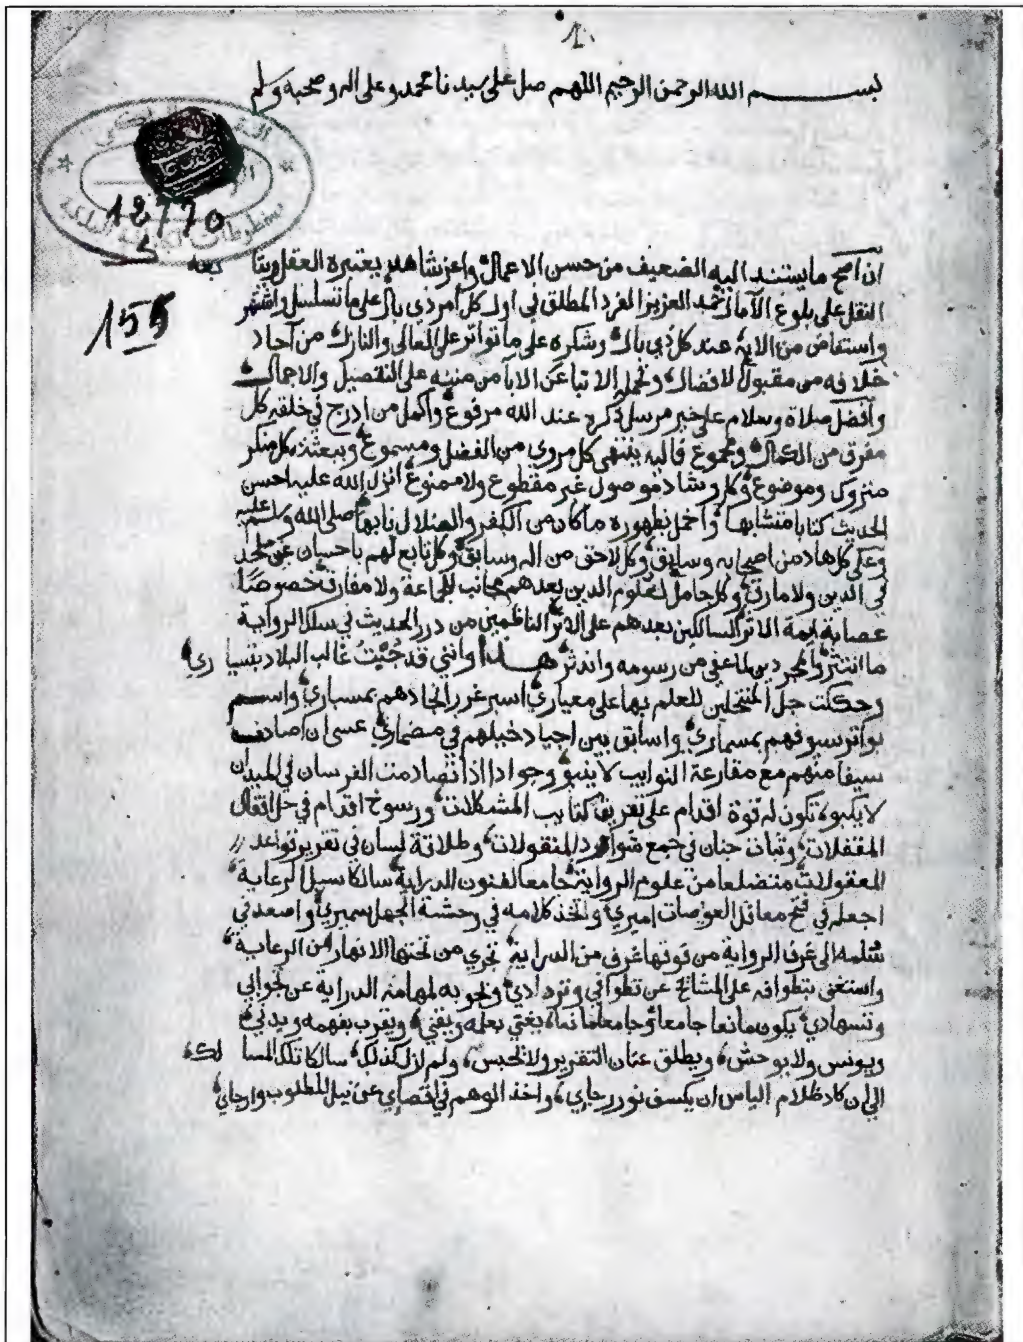 1
بسم الله الرحمن الرحيم اللهم صل على سيدنا محمد وعلى اله وصحبه وسلم
18770
155
ان اصح ما يستند اليه الضعيف من حسن الاعمال واعز شاهد يعتبره العقل ويتابعه
النقل على بلوغ الآمال حمد العزيز الفرد المطلق في اول كل امر ذي بال على ما تسلسل واشتهر
واستفاض من الايه عند كل ذي بال وشكره على ما تواتر على العالي والنازل من آحاد
خلافه من مقبول الافضال وتحمله الاتباع عن الاباء من مننه على التفصيل والاجمال
وافضل صلاة وسلام على خير مرسل ذكره عند الله مرفوع واكمل من ادرج في خلقه كل
مفرق من الكمال ومجموع فاليه ينتهي كل مروي من الفضل ومسموع وببعثته كل منكر
متروك وموضوع وكل شاذ موصول غير مقطوع ولا ممنوع انزل الله عليه احسن
الحديث كتابا متشابها واخمل بظهوره ما كان من الكفر والضلال نابها صلى الله وسلم عليه
وعلى كل هاد من اصحابه وسابق وكل لاحق من اله وسابق وكل تابع لهم باحسان غير ملحد
في الدين ولا مارق وكل حامل لعلوم الدين بعدهم مجانب للجماعة ولا مفارق خصوصًا
عصابة ايمة الاثر السالكين بعدهم على الاثر الناظمين من درر الحديث في سلك الرواية
ما انتثر والمجردين لما عفي من رسومه واندثر هذا وانني قد جُبْتُ غالب البلاد بتسياري
وحككت جل المنتحلين للعلم بها على معياري اسبر غور انجادهم بمسباري واسم
بواتر سيوفهم بمسماري واسابق بين اجياد خيلهم في مضماري عسى ان اصادف
سيفا منهم مع مقارعة النوايب لا ينبو وجوادا اذا تصادمت الفرسان في الميدان
لا يكبو تكون له قوة اقدام على تفريق كتايب المشكلات ورسوخ اقدام في حل اقفال
المقفلات وثبات جنان في جمع شوارد المنقولات وطلاقة لسان في تقرير قواعد
المعقولات متضلعا من علوم الرواية جامعا لفنون الدراية سالكا سبيل الرعاية
اجعله في فتح معاقل العويصات اميري واتخذ كلامه في وحشة الجهل سميري واصعد في
سُلمه الى غرف الرواية من فوقها غرف من الدراية تجري من تحتها الانهار من الرعاية
واستغني بتطوافه على المشائخ عن تطوافي وتردادي وبجوبه لمهامه الدراية عن تجوالي
وتسهادي يكون مانعا جامعا وجامعا مانعا يغني بعلمه ويقني ويقرب بفهمه ويدني
ويونس ولا يوحش ويطلق عنان التقرير ولا يحبس ولم ازل كذلك سالكا تلك المسالك
الى ان كاد ظلام الياس ان يكسف نور رجاءي واخذ الوهم في اقصاءي عن نيل المطلوب وارجاءي